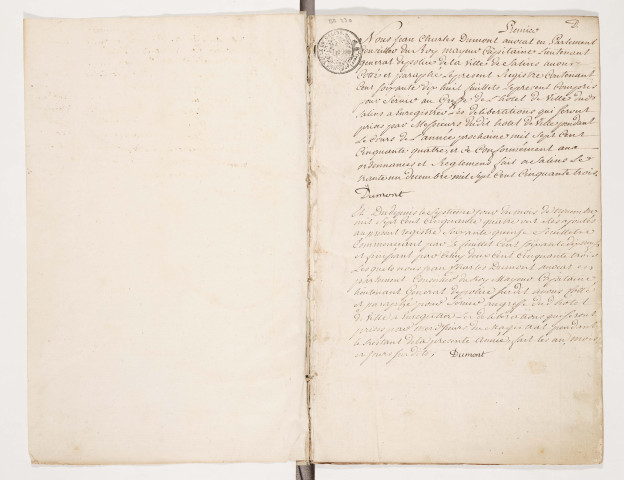 BB 136
Premier
Nous Jean Charles Dumont avocat en Parlement
Conseiller du Roy mayeur Capitaine Lieutenant
general de police de la Ville de Salins avons
Cotté et paraphé le present Registre contenant
Cent soixante dix huit feuillets le present compris
pour servir au Greffe de l'hotel de Ville dud
Salins a enregistrer les deliberations qui seront
prises par Messieurs dudit hotel de Ville pendant
le cours de l'année prochaine mil sept cent
Cinquante quatre, et ce Conformément aux
ordonnances et Reglement fait a Salins le
trente un decembre mil sept cent Cinquante trois
Dumont
Et Du depuis le septieme jour du mois de
mil sept cent cinquante quatre ont été ajoutés
au present registre soixante quinze feuillets
Commencant par le feuillet cent soixante dix neuf
et finissant par deux cent cinquante trois
Lesquels nous Jean Charles Dumont avocat en
parlement Conseiller du Roy Mayeur Capitaine
lieutenant General de police susdit avons cotté
et paraphé pour servir au greffe dud hotel
de Ville a enregistrer les deliberations qui seront
prises par Messieurs du Magistrat pendant
le restant de la presente année, fait les an, mois
et jour susdits, Dumont